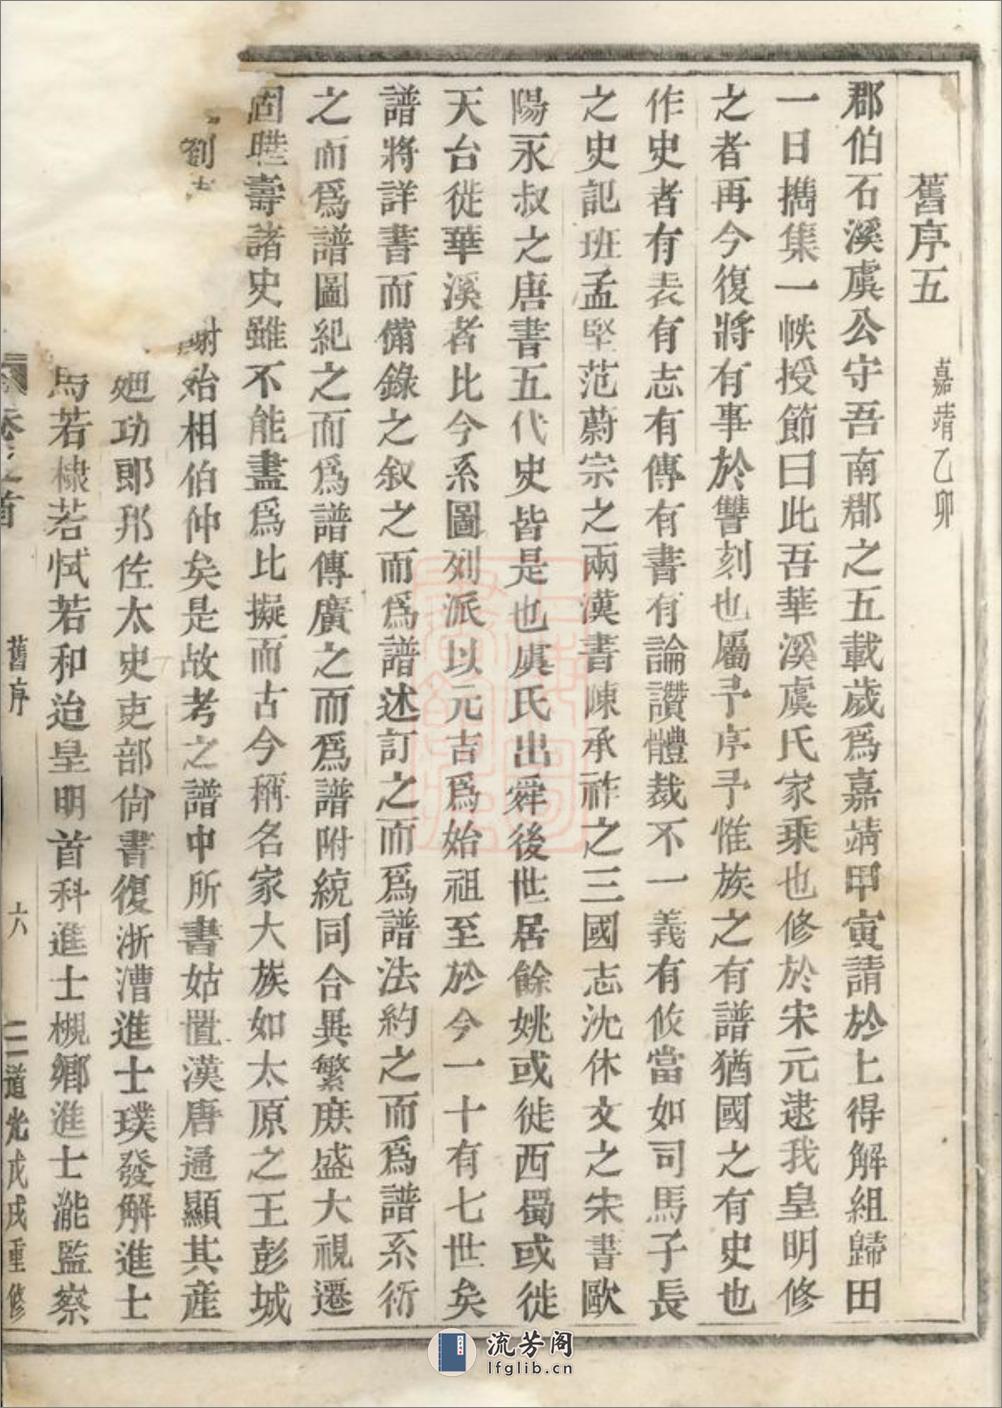 舊序五 嘉靖乙卯
郡伯石溪虞公守吾南郡之五載歲爲嘉靖甲寅請於上得解組歸田
一日攜集一帙授節曰此吾華溪虞氏家乘也修於宋元逮我皇明修
之者再今復將有事於讐刻也屬予序予惟族之有譜猶國之有史也
作史者有表有志有傳有書有論讚體裁不一義有攸當如司馬子長
之史記班孟堅范蔚宗之兩漢書陳承祚之三國志沈休文之宋書歐
陽永叔之唐書五代史皆是也虞氏出舜後世居餘姚或徙西蜀或徙
天台徙華溪者比今系圖列派以元吉爲始祖至於今一十有七世矣
譜將詳書而備錄之叙之而爲譜述訂之而爲譜法約之而爲譜系衍
之而爲譜圖紀之而爲譜傳廣之而爲譜附統同合異繁庶盛大視遷
固曄壽諸史雖不能盡爲比擬而古今稱名家大族如太原之王彭城
劉 謝殆相伯仲矣是故考之譜中所書姑置漢唐通顯其產
廸功郎邦佐太史吏部尙書復浙漕進士璞發解進士
若棣若恜若和迨皇明首科進士槻鄉進士瀧監察
卷之首 舊序 六 道光戊戌重修
流芳阁
lfglib.cn